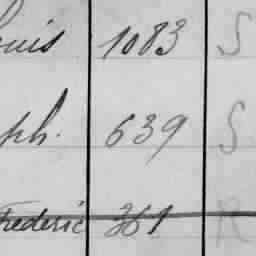 ouis 1083 S
ph. 639 S
Frederic 361 R